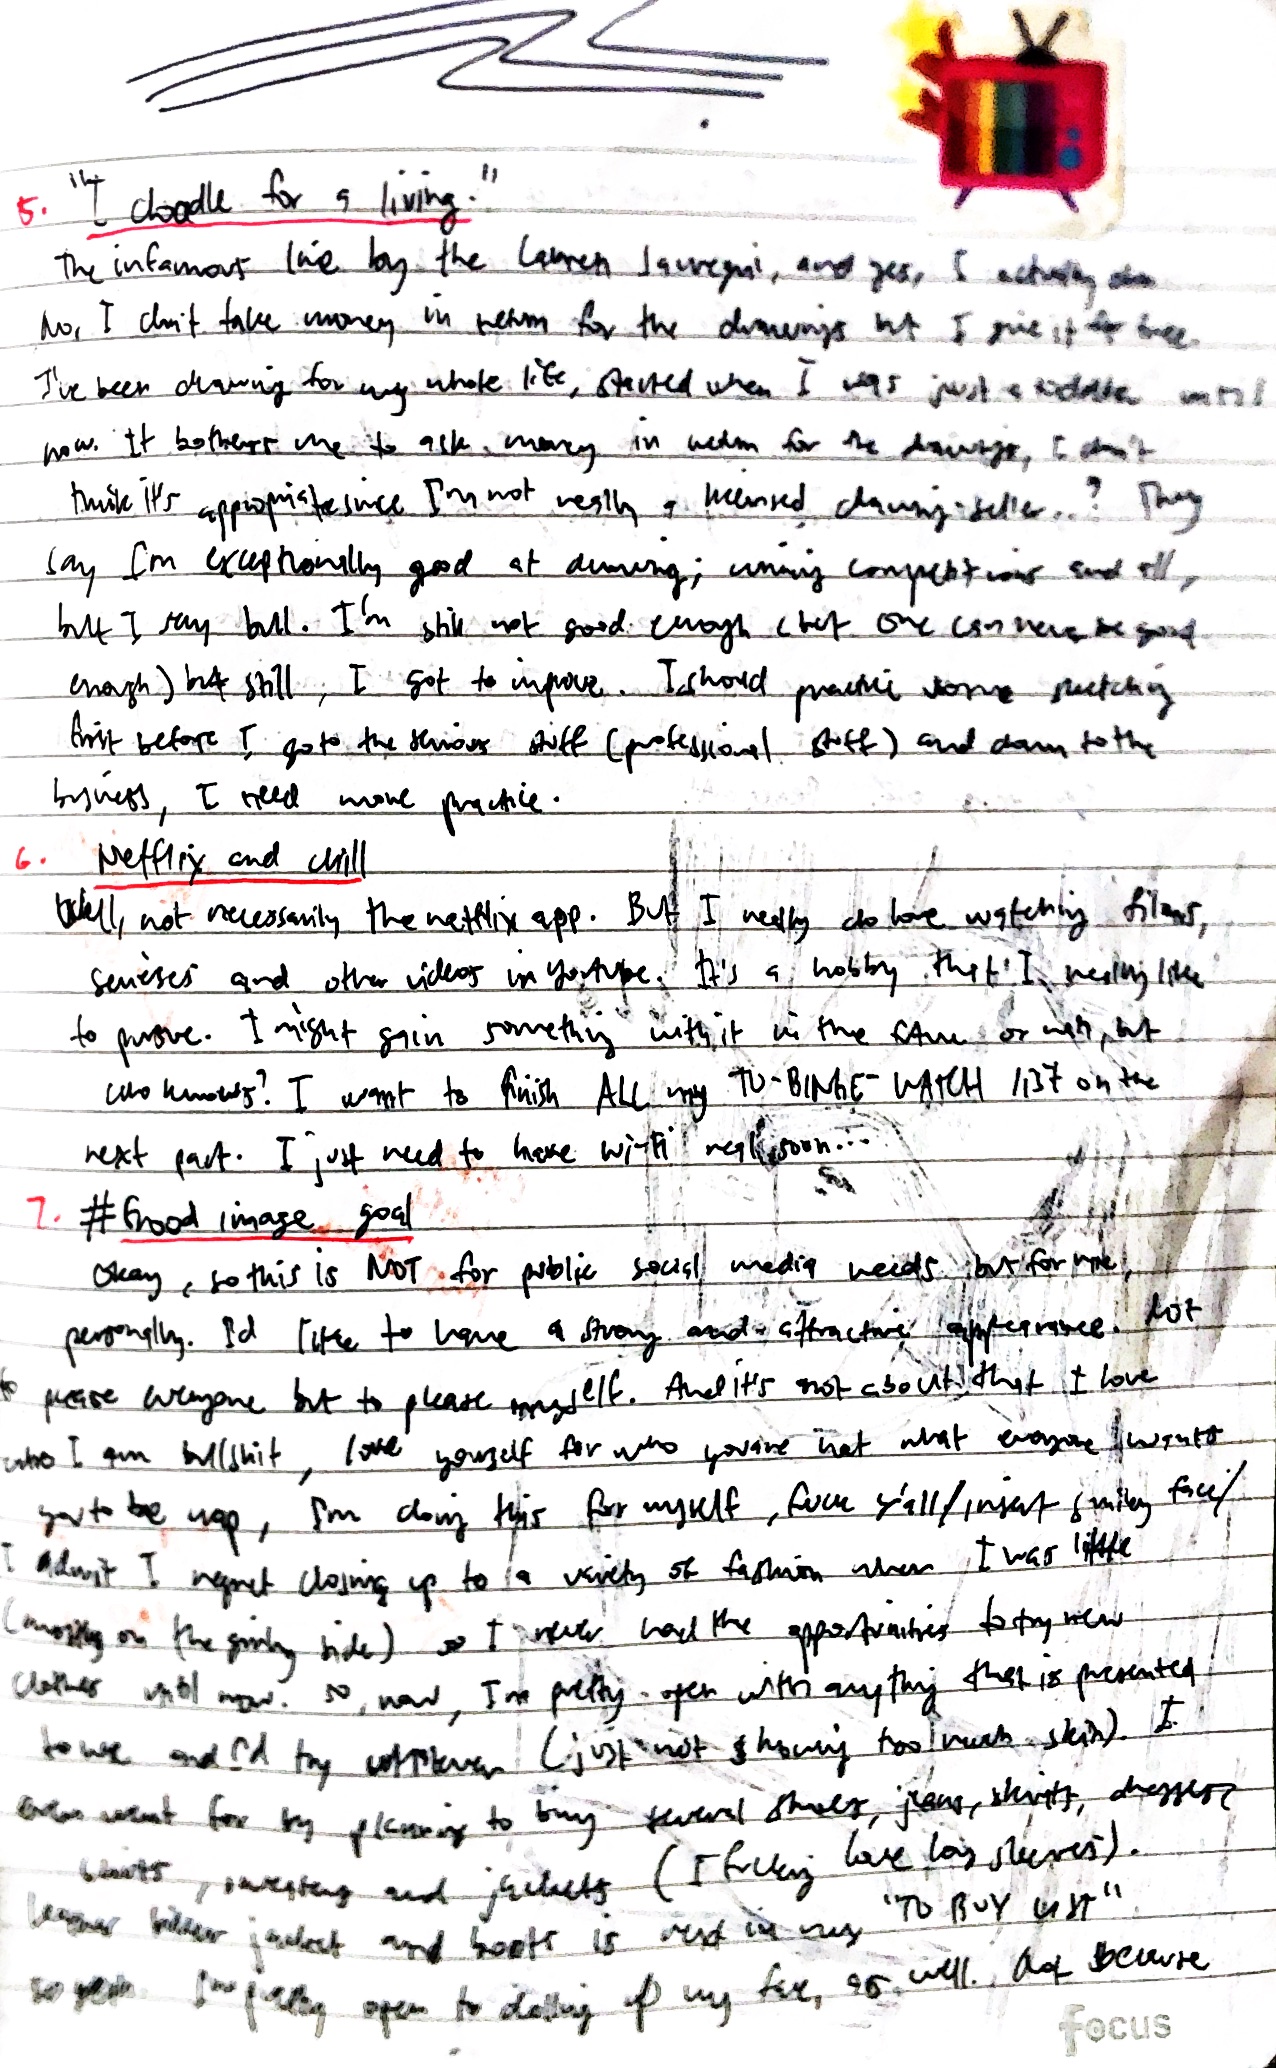 5. "I doodle for a living."
The infamous line by the Lauren Jauregui, and yes, I actually do
No, I don't take money in return for the drawings but I give it for free.
I've been drawing for my whole life, started when I was just a kiddie until
now. It bothers me to ask money in return for the drawings, I don't
think it's appropriate since I'm not really a licensed drawing-seller..? They
say I'm exceptionally good at drawing; winning competitions and all,
but I say bull. I'm still not good enough (but one can never be good
enough) but still, I got to improve. I should practice some sketching
first before I go to the serious stuff (professional stuff) and down to the
business, I need more practice.
6. Netflix and chill
Well, not necessarily the netflix app. But I really do love watching films,
serieses and other videos in Youtube. It's a hobby that I really like
to pursue. I might gain something with it in the future or nah, but
who knows? I want to finish ALL my TO-BINGE-WATCH LIST on the
next part. I just need to have wi-fi real soon...
7. #Good image goal
Okay, so this is NOT for public social media needs but for me,
personally. I'd like to have a strong and attractive appearance. Not
to please everyone but to please myself. And it's not about that I love
who I am bullshit, love yourself for who you are not what everyone wants
you to be nap, I'm doing this for myself, fuck y'all/insert smiley face/
I admit I regret closing up to a variety of fashion when I was little
(mostly on the girly side) so I never had the opportunities to try new
clothes until now. So, now, I'm pretty open with anything that is presented
to me and I'd try whatever (just not showing too much skin). I
even went for by planning to buy several shoes, jeans, skirts, dresses,
shirts, sweaters and jackets (I fucking love long sleeves).
Leather biker jacket and boots is next in my "TO BUY LIST"
so yeah. I'm pretty open to dolling up my face, as well. Not because
Focus